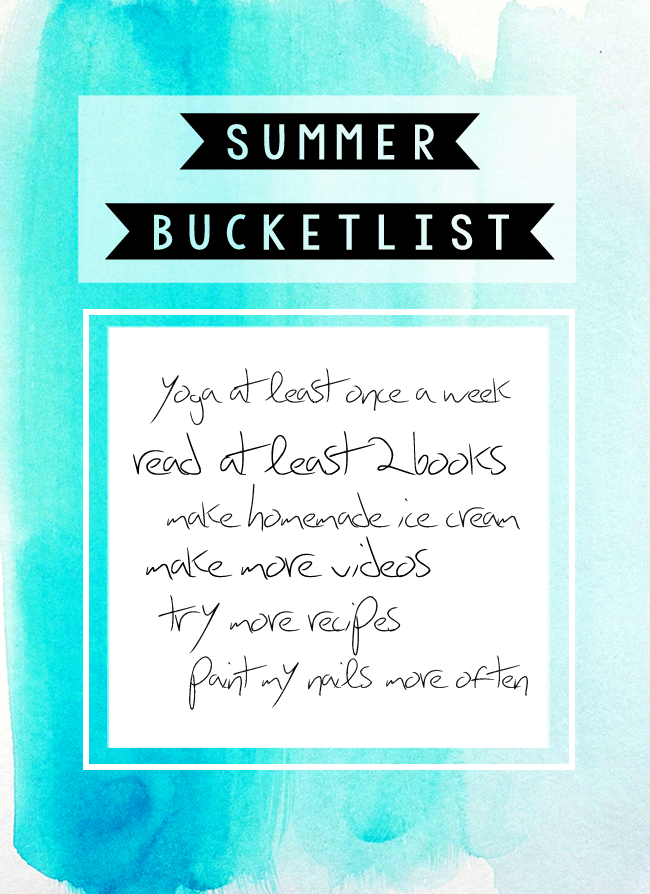 SUMMER
BUCKETLIST
yoga at least once a week
read at least 2 books
make homemade ice cream
make more videos
try more recipes
paint my nails more often